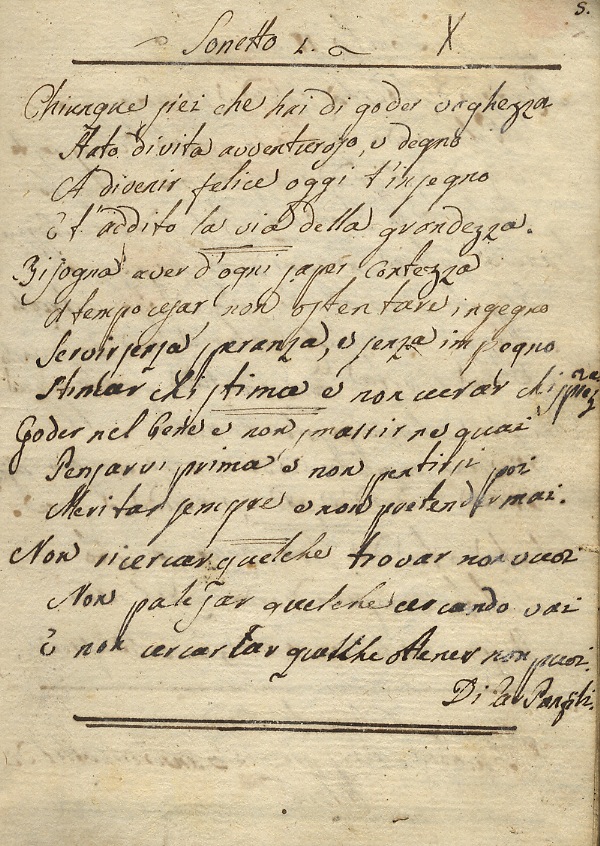 S.
Sonetto 1. X
Chiunque siei che hai di goder vaghezza
Stato di vita avventuroso, e degno
A divenir felice oggi t'insegno
E t'addito la via della grandezza.
Bisogna aver d'ogni saper contezza
A tempo cesar non ostentare ingegno
Servir senza speranza, e senza impegno
Stimar chi stima e non curar chi sprezza
Goder nel bene e non smarrir ne guai
Pensarvi prima e non pentirsi poi
Meritar sempre e non pretender mai.
Non ricercar quelche trovar non vuoi
Non palesar quelche cercando vai
E non cercar quelche ottener non puoi.
Di